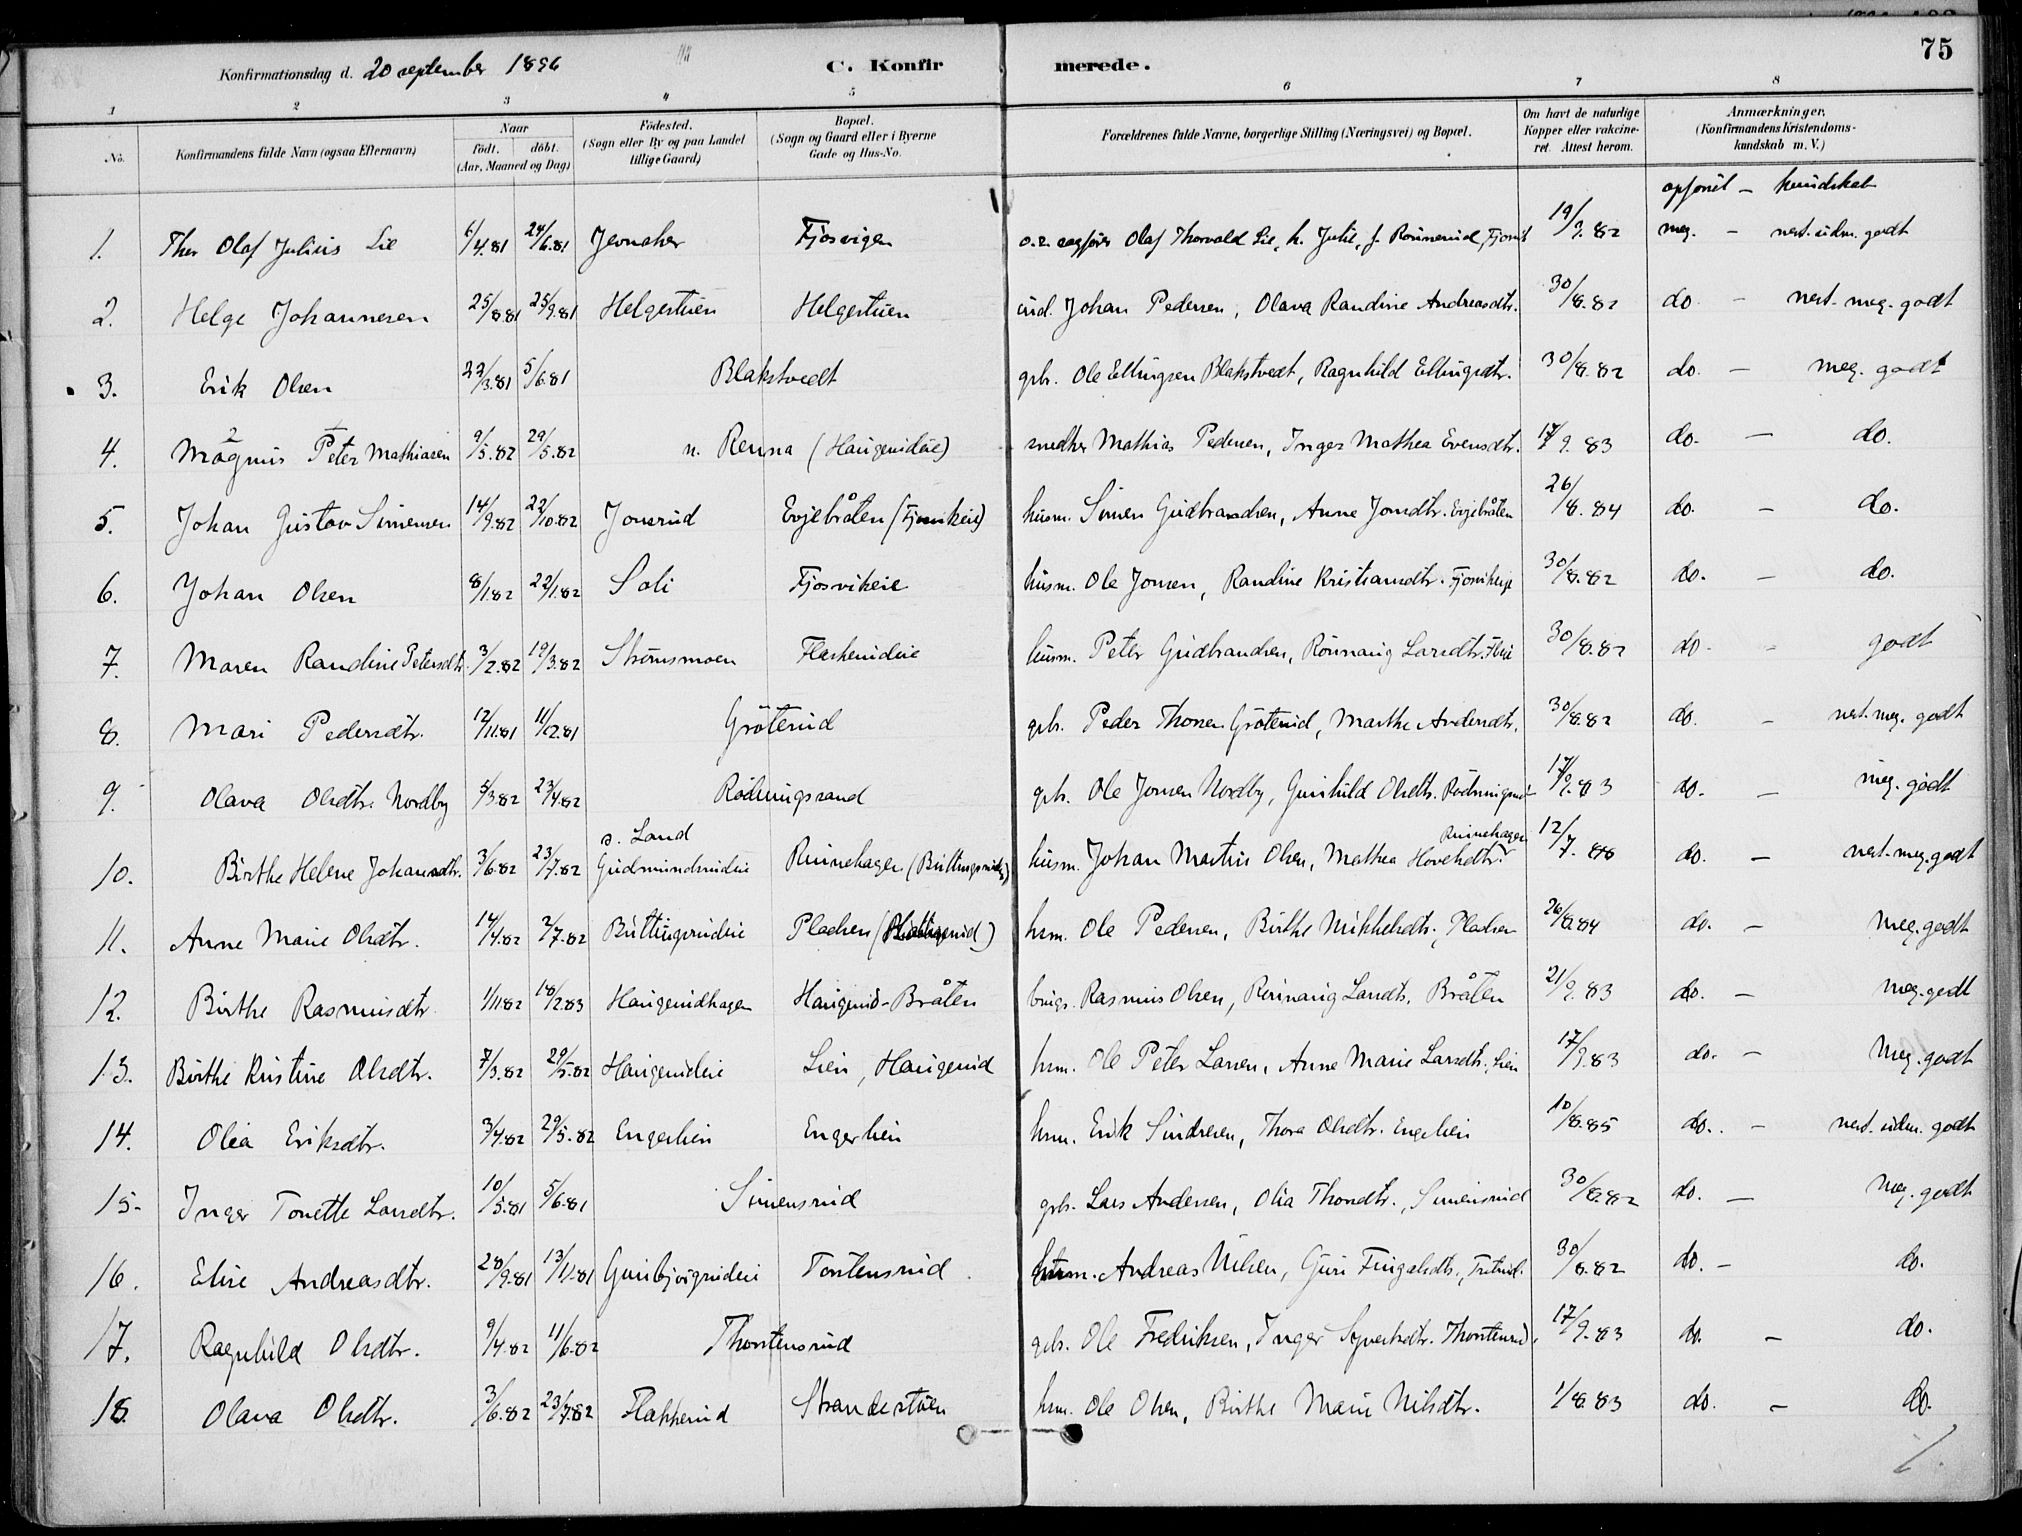 75
Konfirmationsdag d. 20 september 1896 C. Konfirmerede.
1 2 3 4 5 6 7 8
No. Konfirmandens fulde Navn (ogsaa Efternavn) Naar født. døbt. (Aar, Maaned og Dag) Födested. (Sogn eller By og paa Landet tillige Gaard) Bopæl. (Sogn og Gaard eller i Byerne Gade og Hus-No. Forældrenes fulde Navne, borgerlige Stilling (Næringsvei) og Bopæl. Om havt de naturlige Kopper eller vakcineret. Attest herom. Anmærkninger, (Konfirmandens Kristendomskundskab m. V.)
opförsel - kundskab
1. Thor Olaf Julius Lie 6/4.81 24/6.81 Jevnaker Fjosvigen o.r. sagfører Olaf Thorvald Lie, h. Julie, f. Rønnerud, 19/9.82 meg. - nest. udm. godt
2. Helge Johannesen 25/8.81 25/9.81 Helgestuen Helgestuen ind. Johan Pedersen, Olava Randine Andreasdtr. 30/8.82 do - nest. meg. godt
3. Erik Olsen 22/3.81 5/6.81 Blakstvedt gbr. Ole Ellingsen Blakstvedt, Ragnhild Ellingsdtr. 30/8.82 do. - meg. godt
4. Magnus Peter Mathiasen 9/5.82 29/5.82 n. Renna (Haugerudeie) snedker Mathias Pedersen, Inger Mathea Evensdtr. 17/9.83 do. - do.
5. Johan Gustav Simensen 14/9.82 22/10.82 Jonsrud Evjebråten husm. Simen Gudbrandsen, Anne Jonsdtr. Evjebråten 26/8.84 do. - do.
6. Johan Olsen 8/1.82 22/1.82 Soli Fjosvikeie husm. Ole Jonsen, Randine Kristiansdtr. 30/8.82 do. - do.
7. Maren Randine Petersdtr. 3/2.82 19/3.82 Strømsmoen Flaskerudeie husm. Peter Gudbrandsen, Rønnaug Larsdtr. 30/8.82 do - godt
8. Mari Pedersdtr. 12/11.81 11/2.81 Gröterud gbr. Peder Thorsen Gröterud, Marthe Andersdtr. 30/8.82 do. - nest. meg. godt
9. Olava Olsdtr. Nordby 5/3.82 23/4.82 Rödningsand gbr. Ole Jonsen Nordby, Gunhild Olsdtr. 17/9.83 do. - meg. godt
10. Birthe Helene Johansdtr. 3/6.82 23/7.82 s. Land Gudmundsrudeie Ruinehagen husm. Johan Martin Olsen, Mathea Hovelsdtr. Ruinehagen 12/7.88 do. - nest. meg. godt
11. Anne Marie Olsdtr. 14/4.82 2/7.82 Buttingsrudeie Pladsen hsm. Ole Pedersen, Birthe Mikkelsdtr., Pladsen 26/8.84 do. - meg. godt
12. Birthe Rasmusdtr. 1/11.82 18/2.83 Haugerudhagen Haugerud-Bråten brugs. Rasmus Olsen, Rønnaug Larsdtr. Bråten 21/9.83 do. - meg. godt
13. Birthe Kristine Olsdtr. 7/3.82 29/5.82 Haugerudeie Lien, Haugerud hsm. Ole Peter Larsen, Anne Marie Larsdtr. Lien 17/9.83 do. - meg. godt
14. Olea Eriksdtr. 3/4.82 29/5.82 Engerlien Engerlien hsm. Erik Sindresen, Thora Olsdtr. Engerlien 10/8.85 do. - nest. udm. godt
15. Inger Tonette Larsdtr. 10/5.81 5/6.81 Simensrud gbr. Lars Andersen, Olia Thorsdtr., Simensrud 30/8.82 do. - meg. godt
16. Elise Andreasdtr. 28/9.81 13/11.81 Gunbjørgrudeie Tostensrud husm. Andreas Nilsen, Guri Fingalsdtr. 30/8.82 do. - do.
17. Ragnhild Olsdtr. 9/4.82 11/6.82 Thorstensrud gbr. Ole Fredriksen, Inger Syversdtr. Thorstensrud. 17/9.83 do. - do.
18. Olava Olsdtr. 3/6.82 23/7.82 Flakkerud Strandestuen hsm. Ole Olsen, Birthe Marie Nilsdtr. 1/8.83 do. - do.